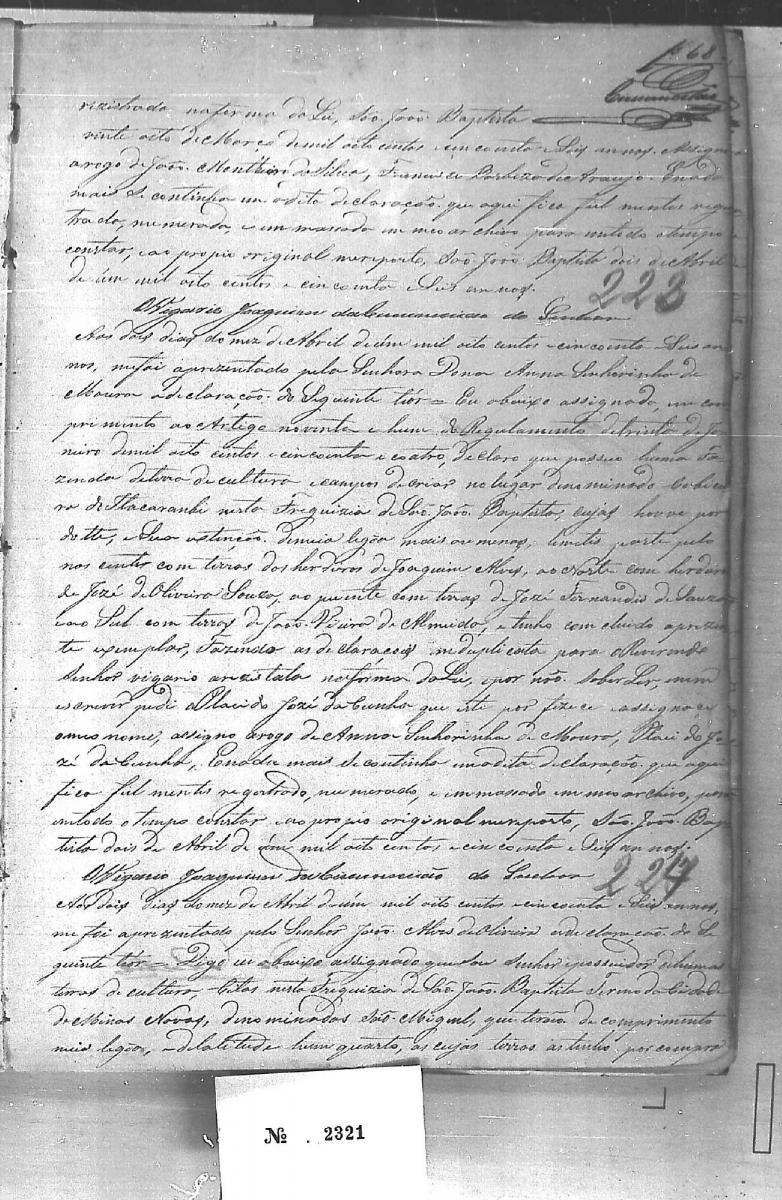 f. 68
rezistrada naforma da Lei, São João Baptista
vinte oito de Março demil oito centos e cincoenta e Seis annos. Assigno
arogo de João Montheiro da Silva, Francisco Barboza de Araujo. Enada
mais se continha em adita declaração que aqui fico fiel mentes regis
trado, numerado, e em massado em meo archivo para entodo otempo
constar, e ao propio original mereporto, São João Baptista dois de Abril
de úm mil oito centos e cincoenta e Seis annos.
223
OVigario Joaquim da Senhor
Aos dois dias do mez de Abril de úm mil oito centos e cincoenta e Seis an
nos, mefoi aprezentado pela Senhora Dona Anna Senhorinha de
Moura adeclaração do Seguinte tiór = Eu abaixo assignado, em com
primento ao Artigo noventa e hum do Regulamento detrinta de Ja
neiro demil oito centos e cincoenta e coatro, declaro que possuo huma Fa
zenda deterra de cultura e campos de criar no lugar denominado Cabicei
ra do Itacarambi nesta Freguizia de São João Baptista, cujas houve por
dotte, e Sua estinção demeia legôa mais ou menos, limites parte pelo
nascente com terras dos herdeiros de Joaquim Alves, ao Norte com herdeiros
de Jozé de Oliveira Souza, ao puente com terras de Jozé Fernandis de Souza
e ao Sul com terras de João Vieira de Almeida, e tenho com cluido aprezen
te exemplar, Fazendo as declaracois induplicata para o Reverendo
Senhor vigario arezistala naforma da Lei, e por não Saber Ler, nem
escrever pedi a Placido Jozé da Cunha que este por fizece e assignace
omeo nome, assigno arogo de Anna Senhorinha de Moura, Placido Jo
zé da Cunha, Enada mais se continha emadita declaração, que aqui
fico fiel mentes regestrado, numerado, e em massado em meo archivo, para
entodo o tempo constar e ao propio original mereporto, São João Bap
tista dois de Abril de úm mil oito centos e cincoenta e Seis annos.
OVigario Joaquim da do Senhor 224
Aos dois dias do mez de Abril deúm mil oito centos e cincoenta e Seis annos,
me foi aprezentado pelo Senhor João Alves de Oliveira adeclaração do Se
guinte tiór = Digo eu abaixo assignado que Sou Senhor e possuidor dehumas
terras de cultura, Citas nesta Freguizia de São João Baptista Termo da Cidade
de Minas Novas, denominados São Miguel, que terão de comprimento
meia legôa, e delatitude hum quarto, as cujas terras astenho por compra
№ 2321